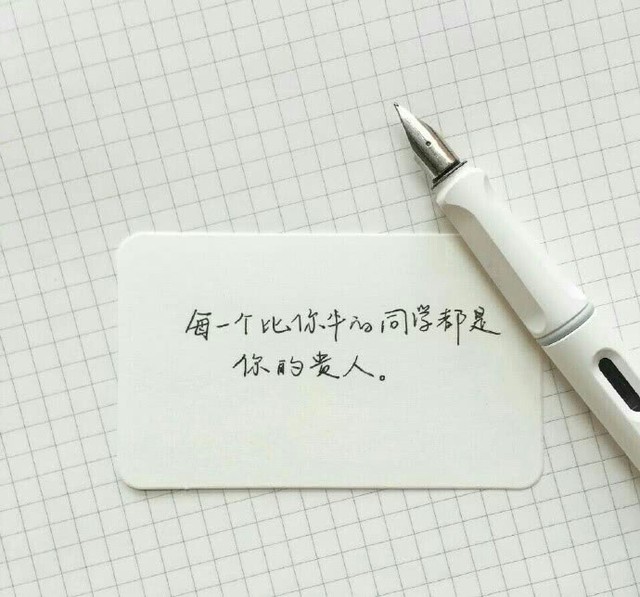 每一个比你牛的同学都是
你的贵人。